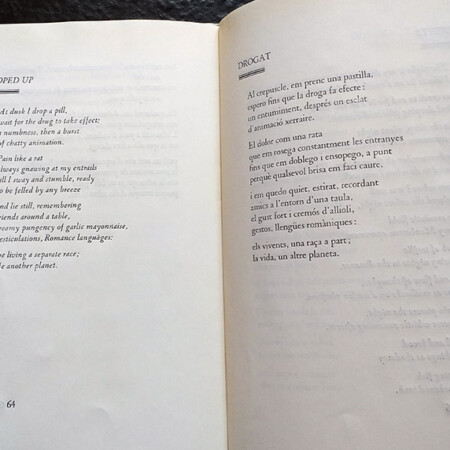 OPED UP
At dusk I drop a pill,
wait for the drug to take effect:
numbness, then a burst
of chatty animation.
Pain like a rat
always gnawing at my entrails
till I sway and stumble, ready
to be felled by any breeze
and lie still, remembering
friends around a table,
creamy pungency of garlic mayonnaise,
gesticulations, Romance languages:
living a separate race;
another planet.
64
DROGAT
Al crepuscle, em prenc una pastilla,
espero fins que la droga fa efecte:
un entumiment, després un esclat
d'animació xerraire.
El dolor com una rata
que em rosega constantment les entranyes
fins que em doblego i ensopego, a punt
perquè qualsevol brisa em faci caure,
i em quedo quiet, estirat, recordant
amics a l'entorn d'una taula,
el gust fort i cremós d'allioli,
gestos, llengües romàniques:
els vivents, una raça a part;
la vida, un altre planeta.